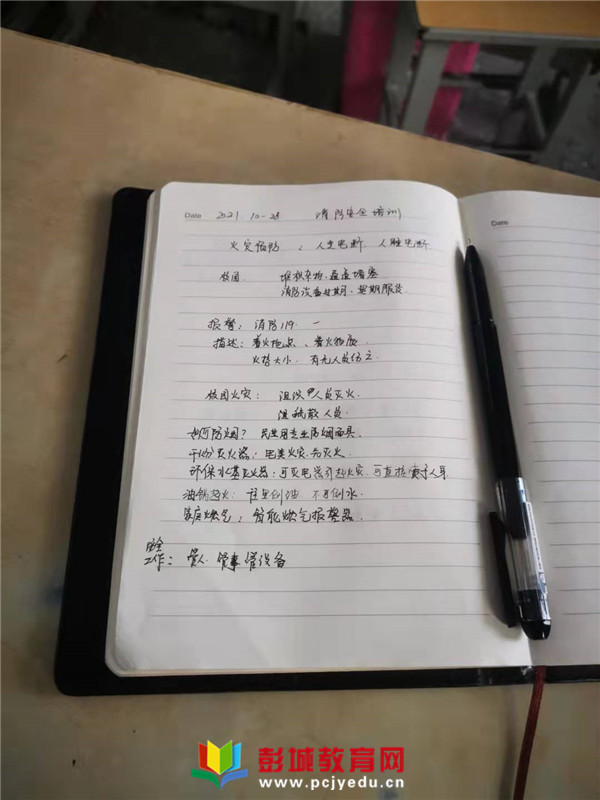 Date 2021 10-28 消防安全培训
火灾预防：人走电断 人睡电断
校园 堆积杂物、通道堵塞
消防设备过期、超期服役
报警：消防119.
描述：着火地点、着火物质
火势大小、有无人员伤亡
校园火灾：组织人员灭火
疏散人员
如何防烟？民生用专业防烟面具
干粉灭火器：电类火灾先灭火
环保水基灭火器：可灭电器引起火灾，可直接喷于人身
油锅起火：往里倒油 不可倒水
家庭燃气：智能燃气报警器
安全
工作：管人、管事、管设备
Date
彭城教育网
www.pcjyedu.cn